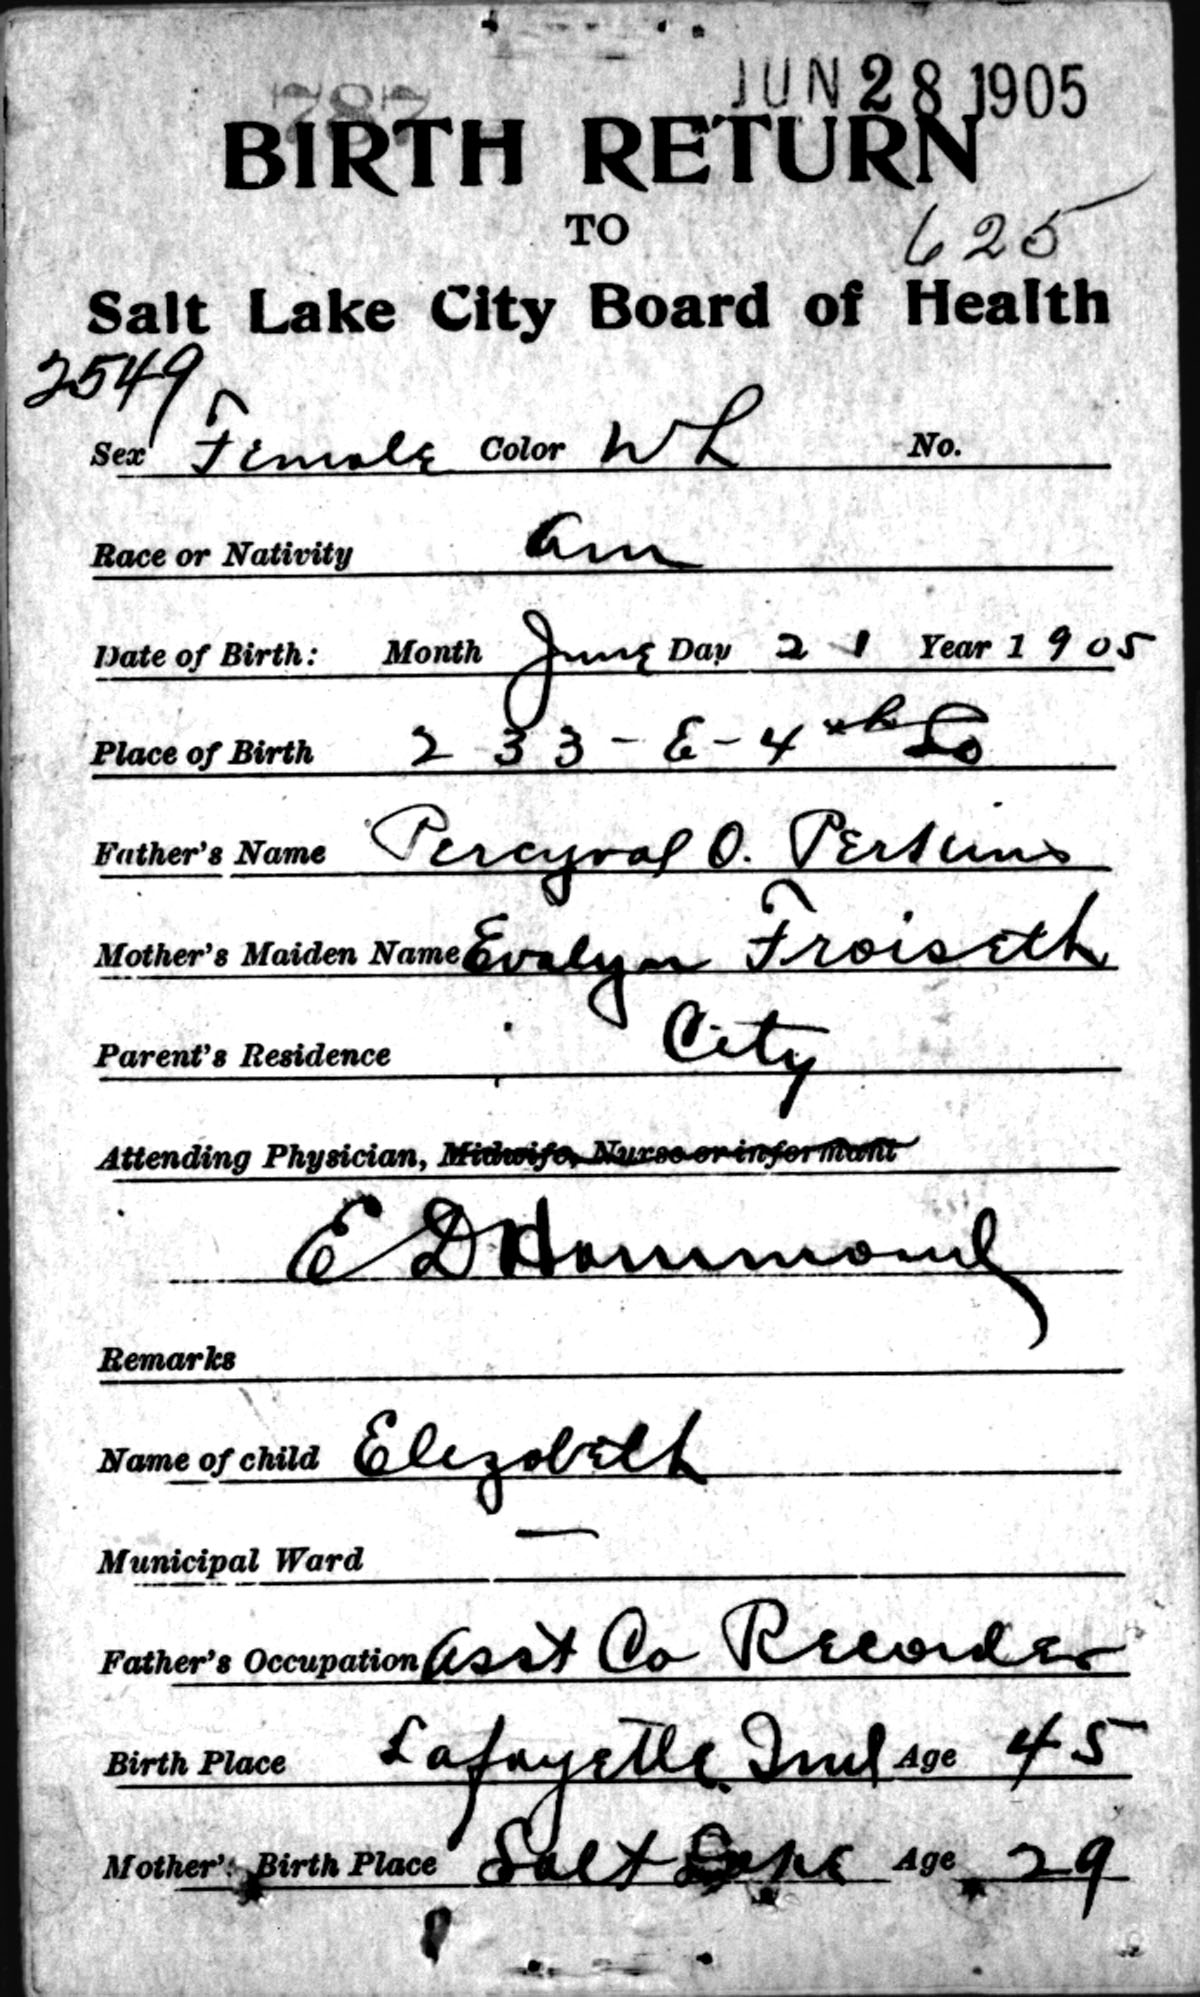 787
JUN 28 1905
BIRTH RETURN
TO
625
Salt Lake City Board of Health
2549
Sex Female Color Wh No.
Race or Nativity Am
Date of Birth: Month June Day 21 Year 1905
Place of Birth 233-E-4th So
Father's Name Percyval O. Perkins
Mother's Maiden Name Evalyn Froiseth
Parent's Residence City
Attending Physician, Midwife, Nurse or informant
E D Hammond
Remarks
Name of child Elizabeth
Municipal Ward —
Father's Occupation Asst Co Recorder
Birth Place Lafayette Ind Age 45
Mother's Birth Place Salt Lake Age 29